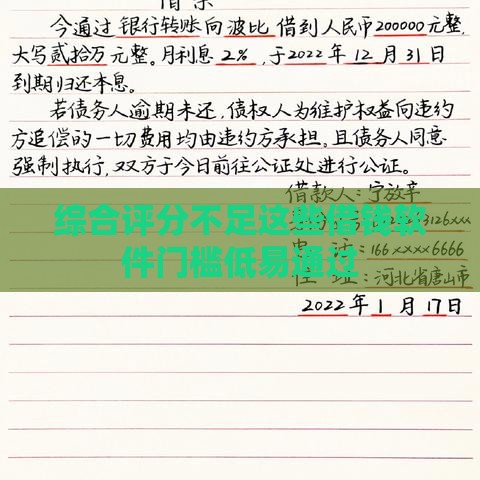 借条
今通过银行转账向波比借到人民币200000元整,
大写贰拾万元整。月利息2%,于2022年12月31日
到期归还本息。
若债务人逾期未还,债权人为维护权益向违约
方追偿的一切费用均由违约方承担。且债务人同意
强制执行,双方于今日前往公证处进行公证。
借款人:宁放辛
综合评分不足这些借钱软
件门槛低易通过
电话:166xxxx6666
住址:河北省唐山市
2022年1月17日